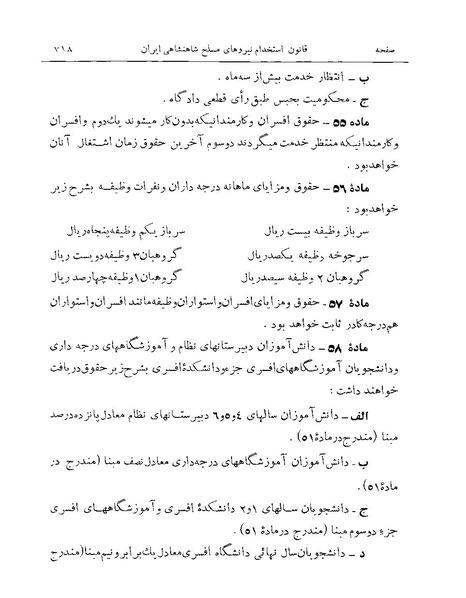 صفحه قانون استخدام نیروهای مسلح شاهنشاهی ایران ۷۱۸
ب ـ انتظار خدمت بیش‌از سه‌ماه .
ج ـ محکومیت بحبس طبق رأی قطعی دادگاه .
ماده ۵۵ ـ حقوق افسران و کارمندانیکه‌بدون‌کار میشوند یك‌دوم و افسران
وکارمندانیکه منتظر خدمت میگردند دوسوم آخرین حقوق زمان اشتغال آنان
خواهدبود .
مادهٔ ۵۶ ـ حقوق ومزایای ماهانه درجه داران ونفرات وظیفه بشرح زیر
خواهدبود :
سرباز وظیفه بیست ریال سرباز یکم وظیفه‌پنجاه‌ریال
سرجوخه وظیفه یکصدریال گروهبان۳ وظیفه‌دویست ریال
گروهبان ۲ وظیفه سیصدریال گروهبان۱وظیفه‌چهارصد ریال
مادهٔ ۵۷ ـ حقوق ومزایای‌افسران‌واستواران‌وظیفه‌مانند افسران‌واستواران
هم‌درجه‌کادر ثابت خواهد بود .
مادهٔ ۵۸ ـ دانش‌آموزان دبیرستانهای نظام و آموزشگاههای درجه داری
ودانشجویان آموزشگاههای‌افسری جزءودانشکدهٔ‌افسری بشرح‌زیرحقوق‌دریافت
خواهند داشت :
الف ـ دانش‌آموزان سالهای ۴و۵و۶ دبیرستانهای نظام معادل پانزده‌درصد
مبنا (مندرج‌درمادهٔ۵۱) .
ب ـ دانش‌آموزان آموزشگاههای درجه‌داری معادل‌نصف مبنا (مندرج در
مادهٔ۵۱) .
ج ـ دانشجویان سالهای ۱و۲ دانشکدهٔ افسری و آموزشگاههای افسری
جزء دوسوم مبنا (مندرج درمادهٔ ۵۱) .
د ـ دانشجویان‌سال نهائی دانشگاه افسری‌معادل‌یك‌برابرونیم‌مبنا(مندرج